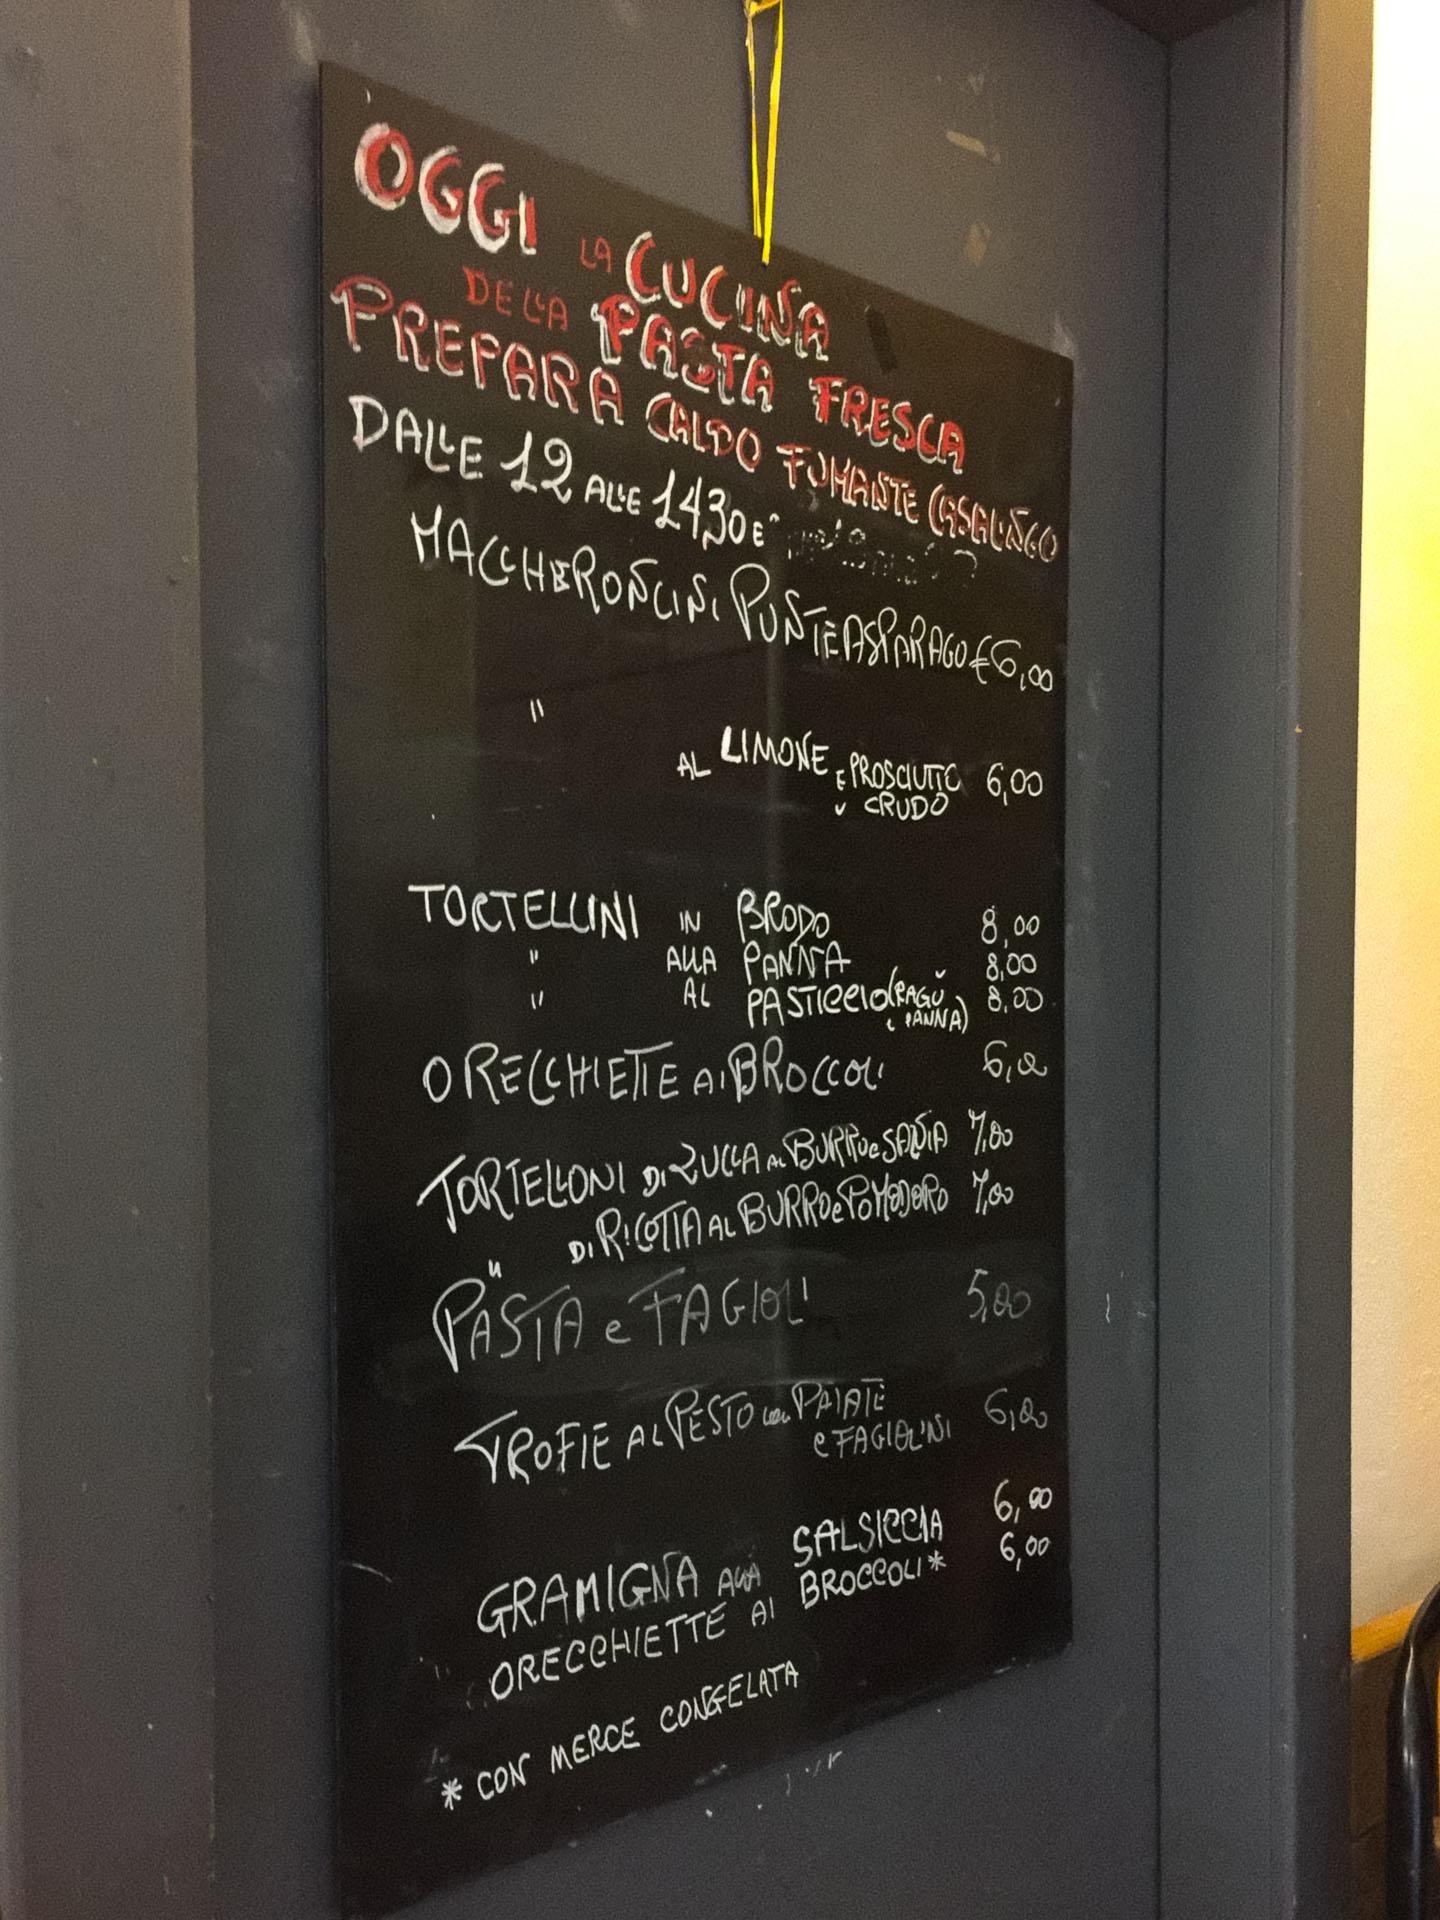 OGGI LA CUCINA
DELLA PASTA FRESCA
PREPARA CALDO FUMANTE CASALINGO
DALLE 12 ALLE 14,30 E
MACCHERONCINI PUNTE ASPARAGO € 6,00
" AL LIMONE E PROSCIUTTO 6,00
CRUDO
TORTELLINI IN BRODO 8,00
" ALLA PANNA 8,00
" AL PASTICCIO (RAGÙ 8,00
e PANNA)
ORECCHIETTE AI BROCCOLI 6,00
TORTELLONI DI ZUCCA AL BURRO e SALVIA 7,00
" DI RICOTTA AL BURRO e POMODORO 7,00
PASTA e FAGIOLI 5,00
TROFIE AL PESTO con PATATE 6,00
e FAGIOLINI
GRAMIGNA ALLA SALSICCIA 6,00
ORECCHIETTE AI BROCCOLI* 6,00
* CON MERCE CONGELATA